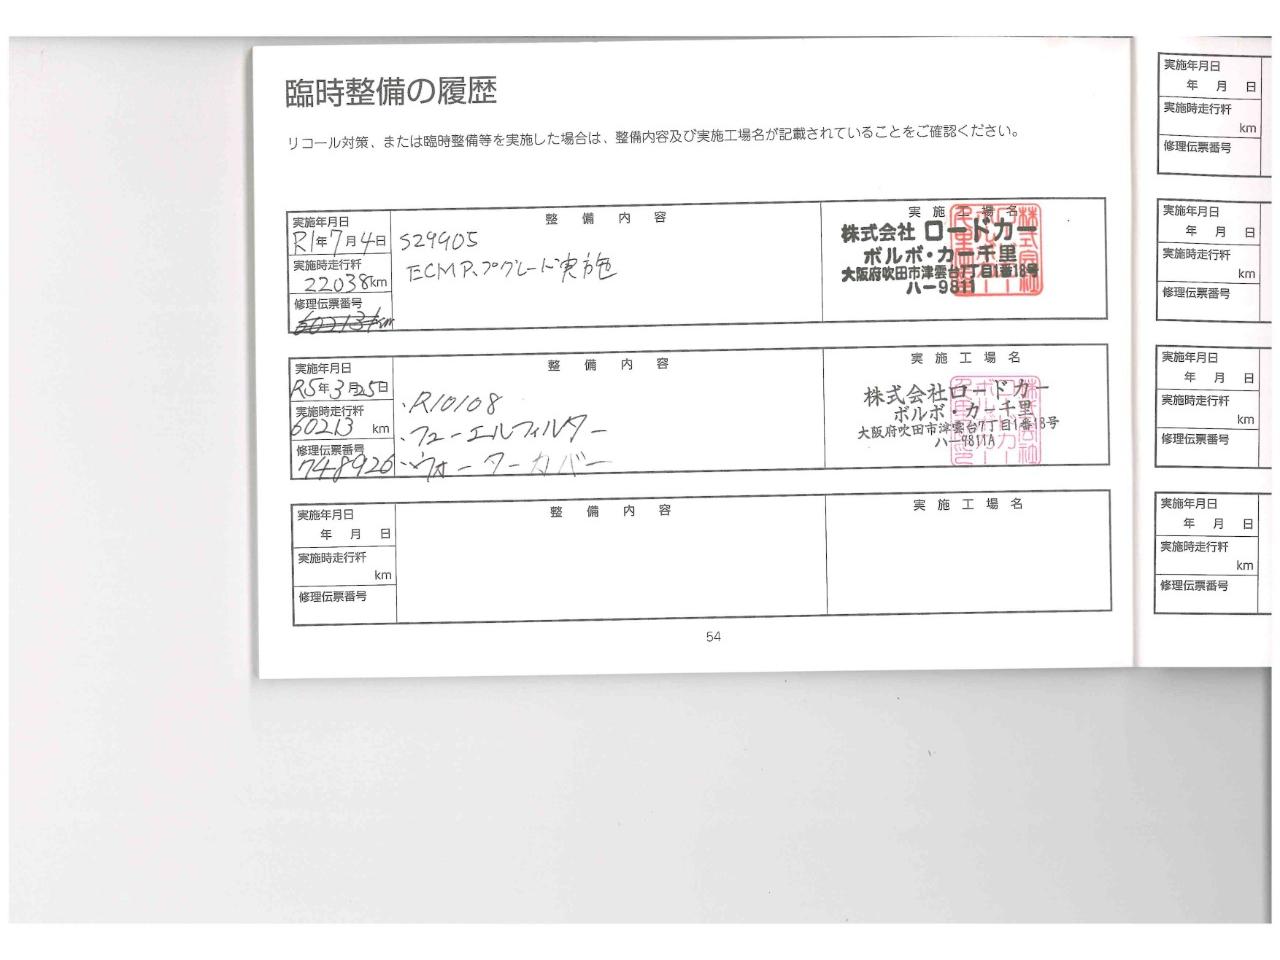 臨時整備の履歴
リコール対策、または臨時整備等を実施した場合は、整備内容及び実施工場名が記載されていることをご確認ください。
実施年月日
R1年7月4日
実施時走行粁
22038km
修理伝票番号
60213km
整備内容
S29905
ECMアップグレード実施
実施工場名
株式会社 ロードカー
ボルボ・カー千里
大阪府吹田市津雲台7丁目1番18号
ハー9811
実施年月日
R5年3月25日
実施時走行粁
60213 km
修理伝票番号
748926
整備内容
・R10108
・フューエルフィルター
・ウォーターカバー
実施工場名
株式会社ロードカー
ボルボ・カー千里
大阪府吹田市津雲台7丁目1番18号
ハー9811A
実施年月日
年 月 日
実施時走行粁
km
修理伝票番号
整備内容
実施工場名
54
実施年月日
年 月 日
実施時走行粁
km
修理伝票番号
実施年月日
年 月 日
実施時走行粁
km
修理伝票番号
実施年月日
年 月 日
実施時走行粁
km
修理伝票番号
実施年月日
年 月 日
実施時走行粁
km
修理伝票番号